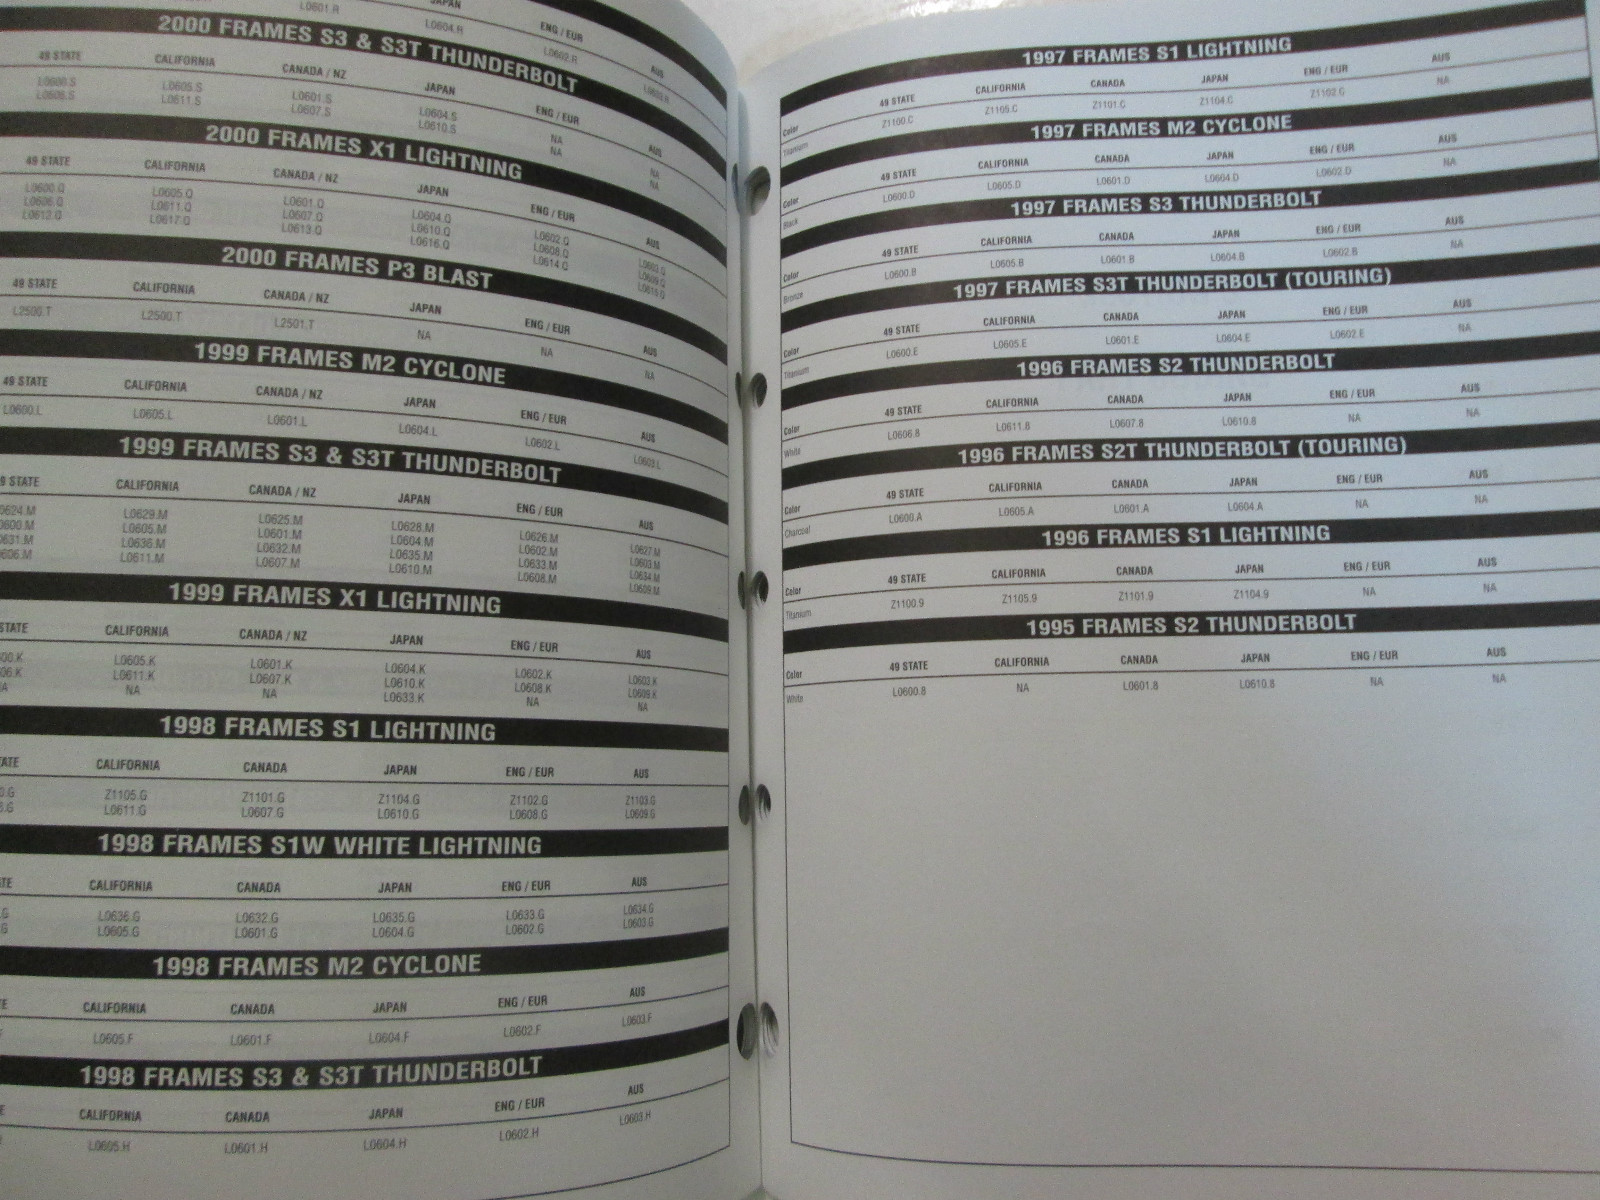 L0601.R
JAPAN
L0604.R
ENG / EUR
L0602.R
AUS
2000 FRAMES S3 & S3T THUNDERBOLT
49 STATE CALIFORNIA CANADA / NZ JAPAN ENG / EUR AUS
L0600.S L0605.S L0601.S L0604.S NA NA
L0606.S L0611.S L0607.S L0610.S NA NA
2000 FRAMES X1 LIGHTNING
49 STATE CALIFORNIA CANADA / NZ JAPAN ENG / EUR AUS
L0600.Q L0605.Q L0601.Q L0604.Q L0602.Q L0603.Q
L0606.Q L0611.Q L0607.Q L0610.Q L0608.Q L0609.Q
L0612.Q L0617.Q L0613.Q L0616.Q L0614.Q L0615.Q
2000 FRAMES P3 BLAST
49 STATE CALIFORNIA CANADA / NZ JAPAN ENG / EUR AUS
L2500.T L2500.T L2501.T NA NA NA
1999 FRAMES M2 CYCLONE
49 STATE CALIFORNIA CANADA / NZ JAPAN ENG / EUR AUS
L0600.L L0605.L L0601.L L0604.L L0602.L L0603.L
1999 FRAMES S3 & S3T THUNDERBOLT
9 STATE CALIFORNIA CANADA / NZ JAPAN ENG / EUR AUS
0624.M L0629.M L0625.M L0628.M L0626.M L0627.M
0600.M L0605.M L0601.M L0604.M L0602.M L0603.M
0631.M L0636.M L0632.M L0635.M L0633.M L0634.M
0606.M L0611.M L0607.M L0610.M L0608.M L0609.M
1999 FRAMES X1 LIGHTNING
STATE CALIFORNIA CANADA / NZ JAPAN ENG / EUR AUS
00.K L0605.K L0601.K L0604.K L0602.K L0603.K
06.K L0611.K L0607.K L0610.K L0608.K L0609.K
A NA NA L0633.K NA NA
1998 FRAMES S1 LIGHTNING
ATE CALIFORNIA CANADA JAPAN ENG / EUR AUS
0.G Z1105.G Z1101.G Z1104.G Z1102.G Z1103.G
6.G L0611.G L0607.G L0610.G L0608.G L0609.G
1998 FRAMES S1W WHITE LIGHTNING
TE CALIFORNIA CANADA JAPAN ENG / EUR AUS
.G L0636.G L0632.G L0635.G L0633.G L0634.G
G L0605.G L0601.G L0604.G L0602.G L0603.G
1998 FRAMES M2 CYCLONE
E CALIFORNIA CANADA JAPAN ENG / EUR AUS
L0605.F L0601.F L0604.F L0602.F L0603.F
1998 FRAMES S3 & S3T THUNDERBOLT
E CALIFORNIA CANADA JAPAN ENG / EUR AUS
L0605.H L0601.H L0604.H L0602.H L0603.H
1997 FRAMES S1 LIGHTNING
Color 49 STATE CALIFORNIA CANADA JAPAN ENG / EUR AUS
Titanium Z1100.C Z1105.C Z1101.C Z1104.C Z1102.C NA
1997 FRAMES M2 CYCLONE
Color 49 STATE CALIFORNIA CANADA JAPAN ENG / EUR AUS
Black L0600.D L0605.D L0601.D L0604.D L0602.D NA
1997 FRAMES S3 THUNDERBOLT
Color 49 STATE CALIFORNIA CANADA JAPAN ENG / EUR AUS
Bronze L0600.B L0605.B L0601.B L0604.B L0602.B NA
1997 FRAMES S3T THUNDERBOLT (TOURING)
Color 49 STATE CALIFORNIA CANADA JAPAN ENG / EUR AUS
Titanium L0600.E L0605.E L0601.E L0604.E L0602.E NA
1996 FRAMES S2 THUNDERBOLT
Color 49 STATE CALIFORNIA CANADA JAPAN ENG / EUR AUS
White L0606.8 L0611.8 L0607.8 L0610.8 NA NA
1996 FRAMES S2T THUNDERBOLT (TOURING)
Color 49 STATE CALIFORNIA CANADA JAPAN ENG / EUR AUS
Charcoal L0600.A L0605.A L0601.A L0604.A NA NA
1996 FRAMES S1 LIGHTNING
Color 49 STATE CALIFORNIA CANADA JAPAN ENG / EUR AUS
Titanium Z1100.9 Z1105.9 Z1101.9 Z1104.9 NA NA
1995 FRAMES S2 THUNDERBOLT
Color 49 STATE CALIFORNIA CANADA JAPAN ENG / EUR AUS
White L0600.8 NA L0601.8 L0610.8 NA NA